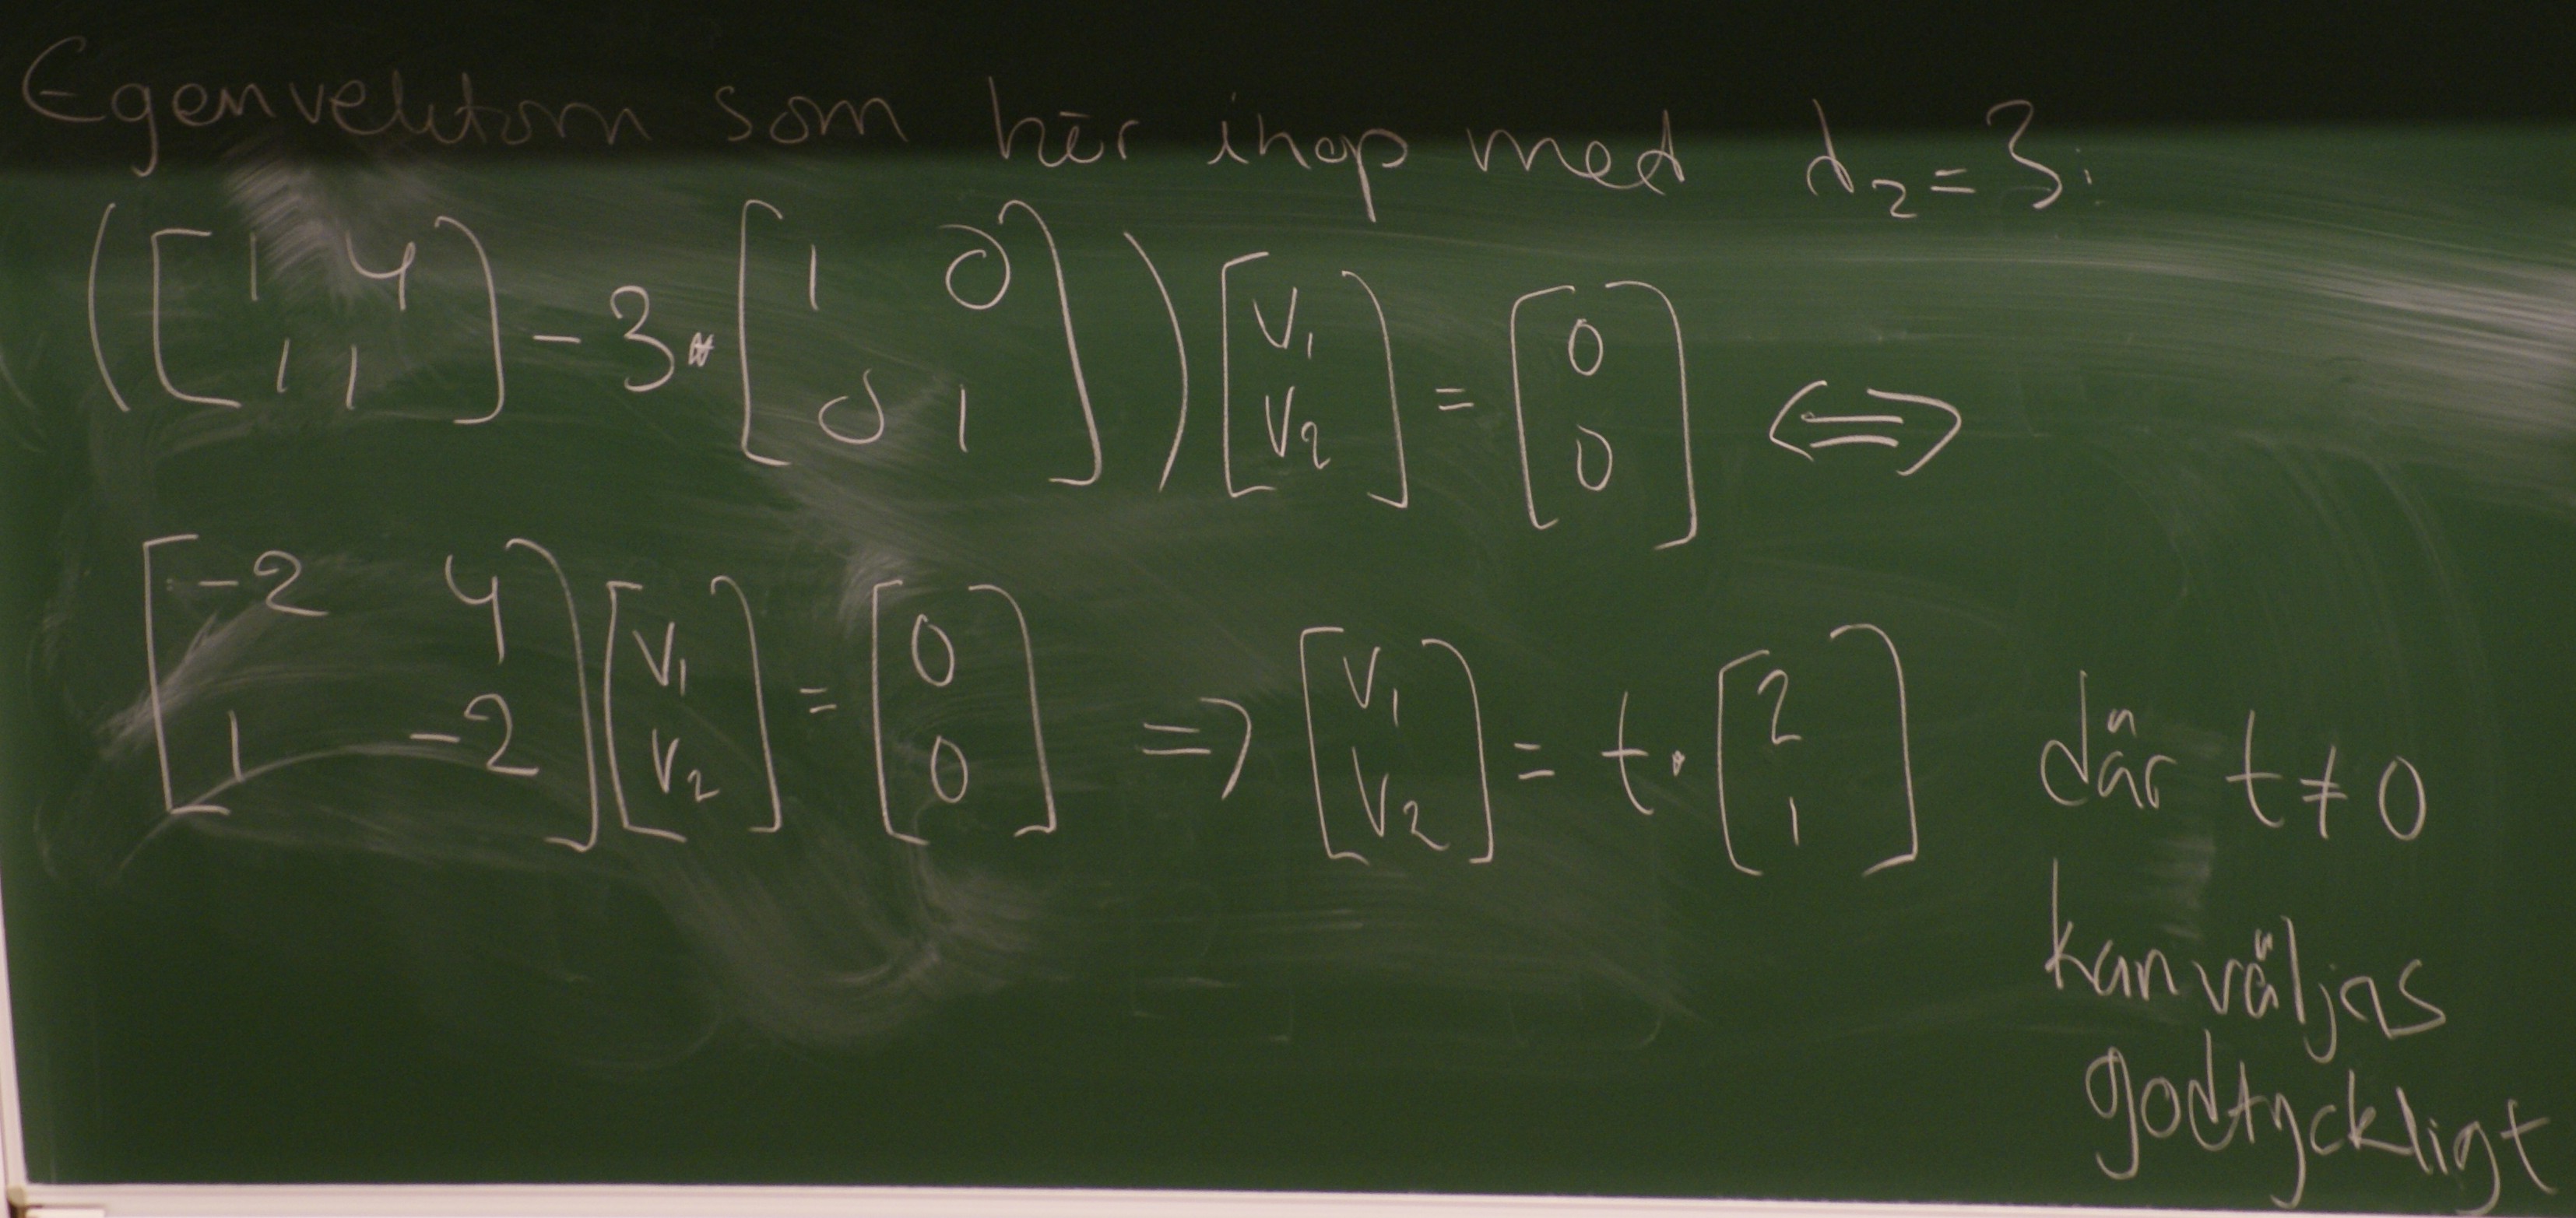 Egenvektorn som hör ihop med λ₂ = 3:
([1 4; 1 1] - 3·[1 0; 0 1]) [v₁; v₂] = [0; 0] ⇔
[-2 4; 1 -2] [v₁; v₂] = [0; 0] ⇒ [v₁; v₂] = t·[2; 1] där t ≠ 0
kan väljas
godtyckligt